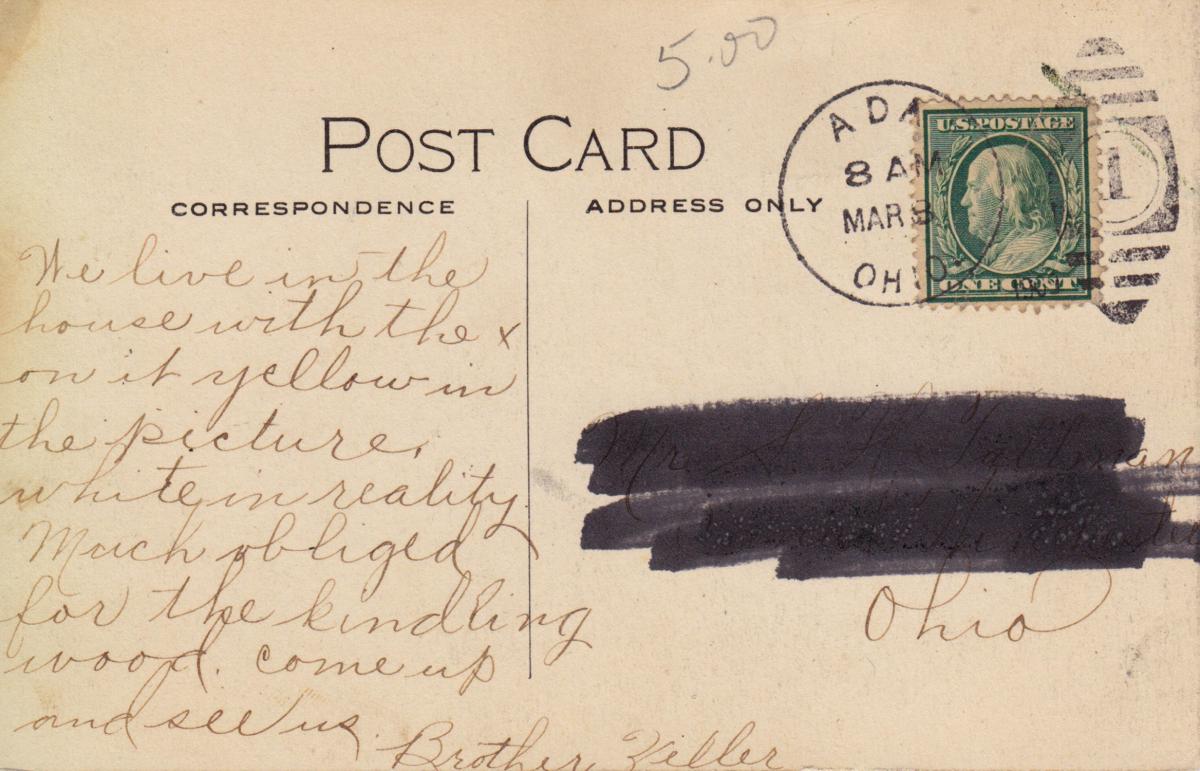 5.00
POST CARD
CORRESPONDENCE
ADDRESS ONLY
ADA
8 AM
MAR 8
OHIO
1909
U.S. POSTAGE
ONE CENT
1
We live in the
house with the x
on it yellow in
the picture,
white in reality
Much obliged
for the kindling
wood. come up
and see us.
Brother Zeller
Mr. S.
Ohio